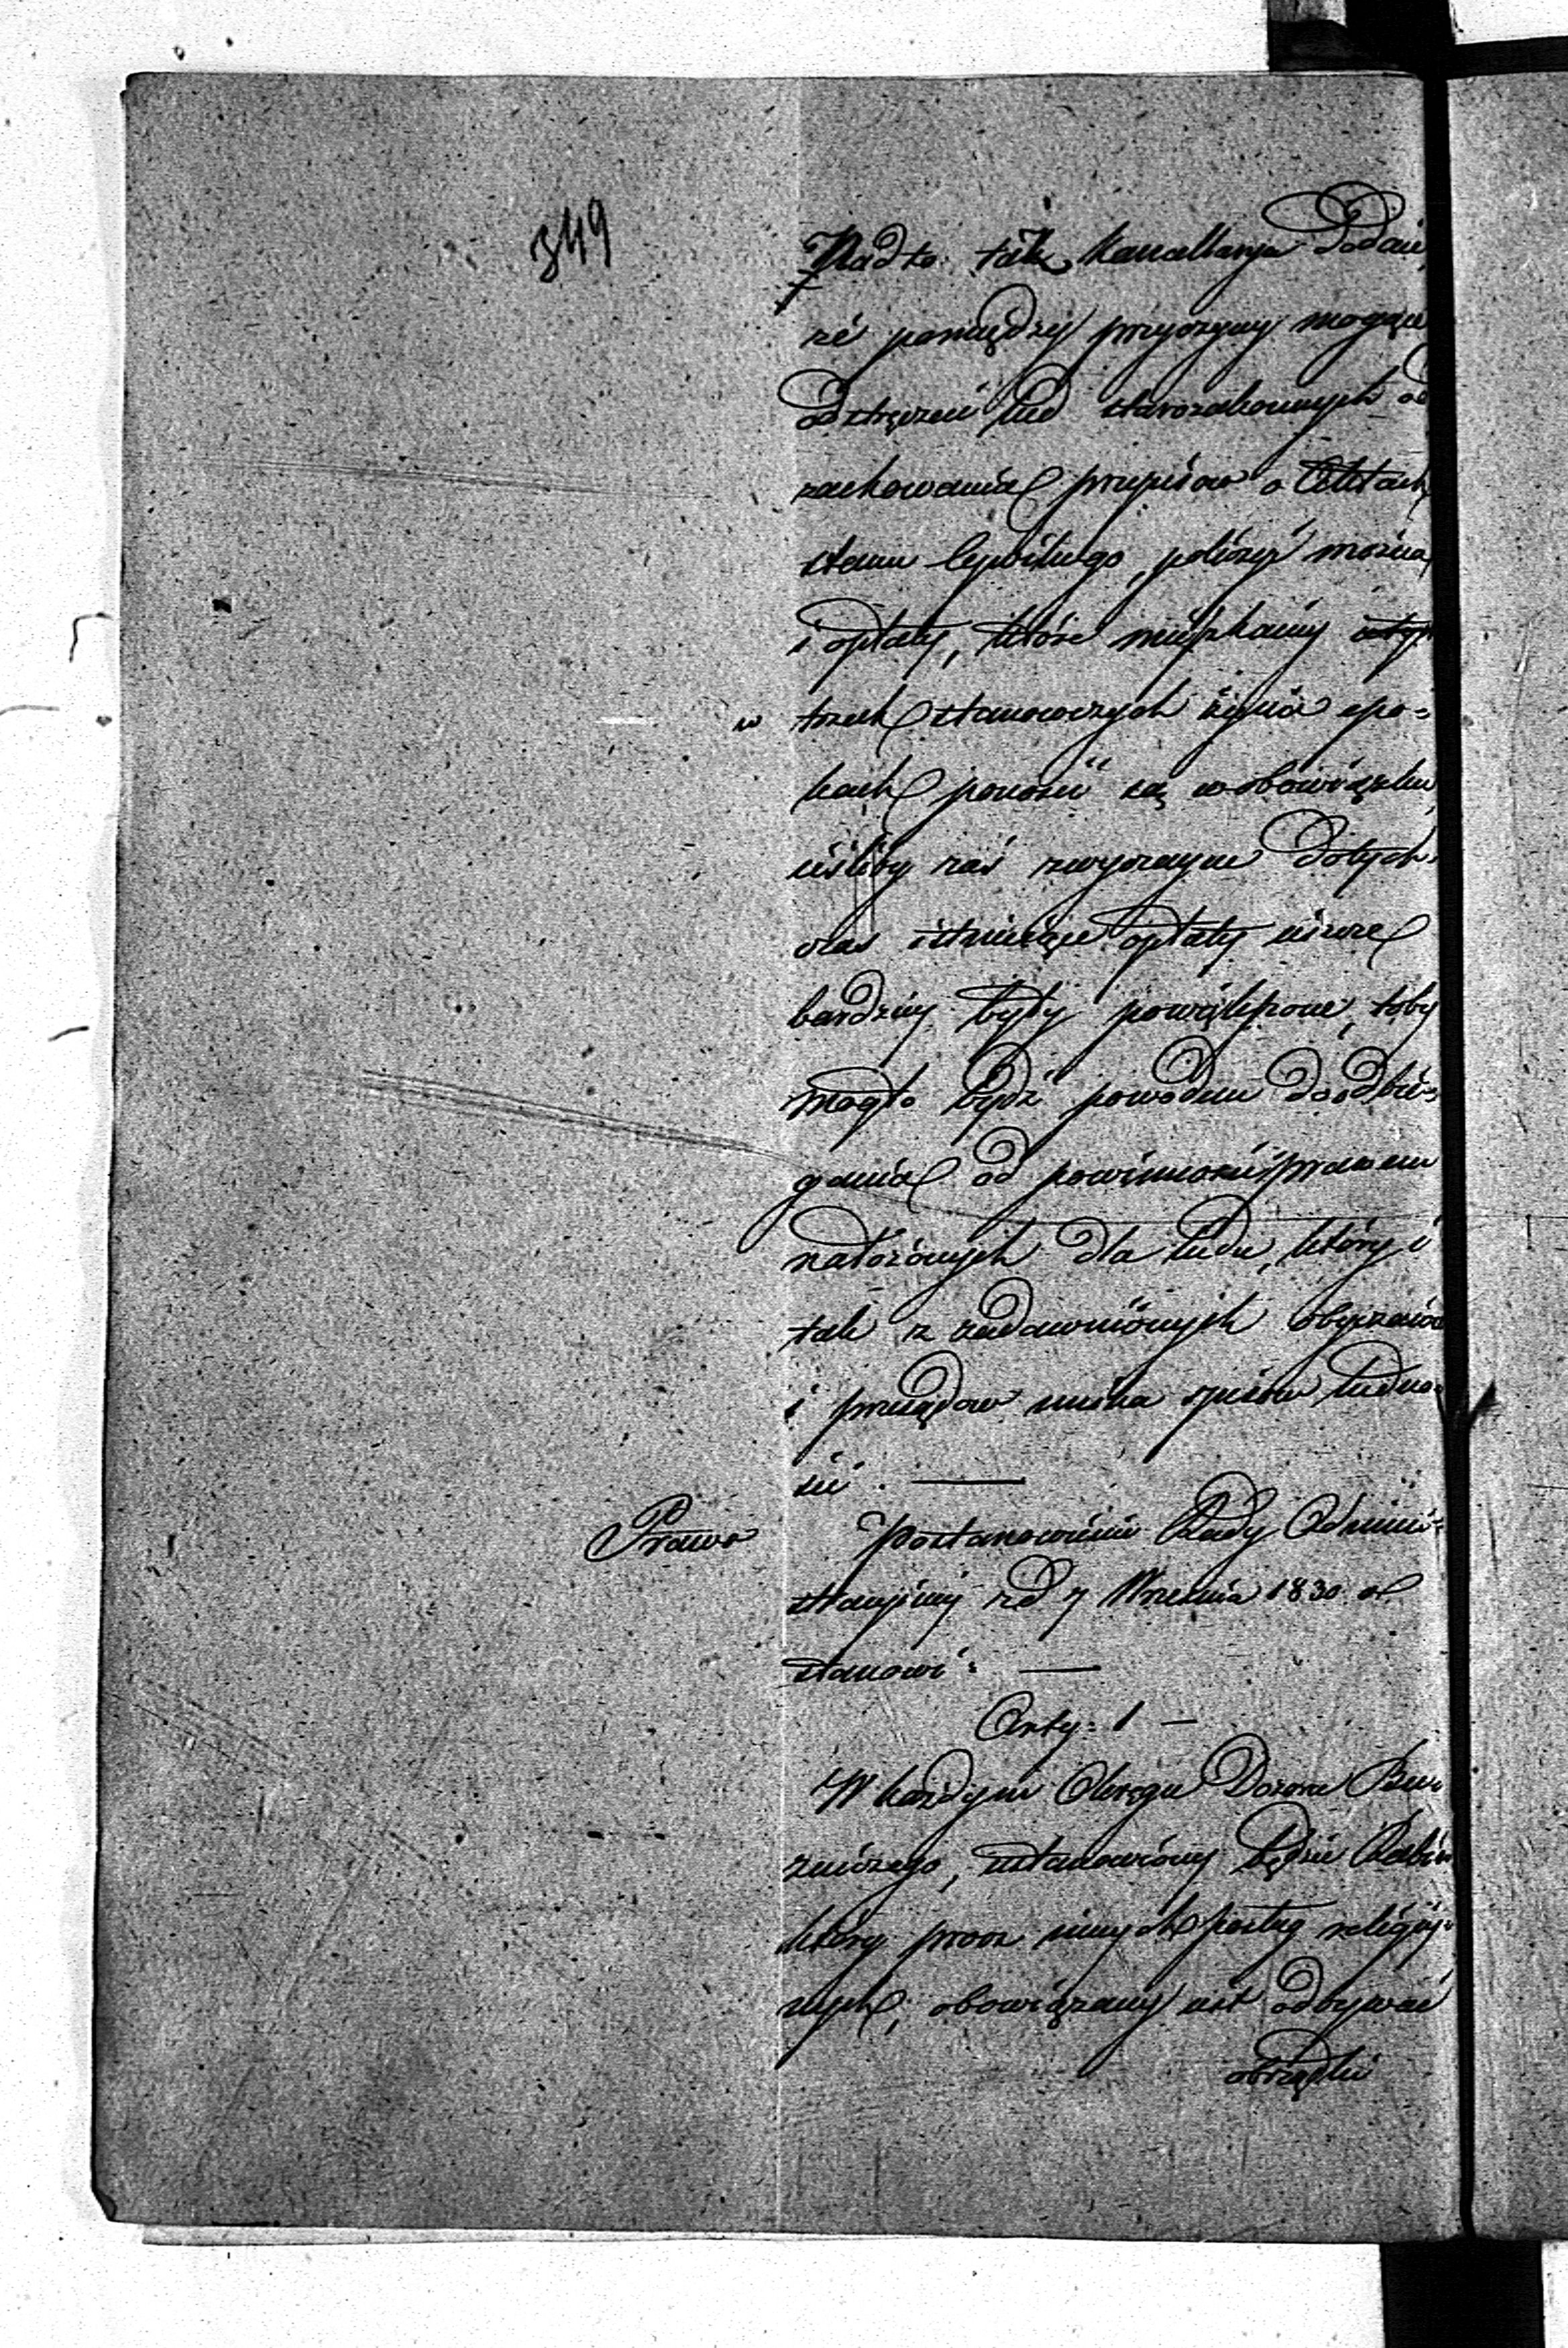 349
Nadto też Kancellarya dodaie,
że pomiędzy przyczyny mogące
odstręczać lud starozakonnych od
zachowania przepisów o Aktach
stanu Cywilnego, policzyć można
i opłaty, które mieszkańcy
w trzech stanowczych życia epo=
kach ponosić są w obowiązku,
ieśliby zaś zwyczayne dotych=
czas istnieiące opłaty ieszcze
bardziey były powiększone, toby
mogło bydź powodem do odbie=
gania od powinności prawem
nałożonych dla ludu, który i
tak z zadawnionych obyczaiów
i przesądów unika spisów ludno=
ści. —
Prawo
Postanowienie Rady Admini=
stracyiney z d 7 Września 1830 r
stanowi: —
Arty: 1 —
W każdym Okręgu Dozoru Bóż=
niczego, ustanowiony będzie Rabin
który prócz innych posług religiy=
nych, obowiązany iest odbywać
obrządki